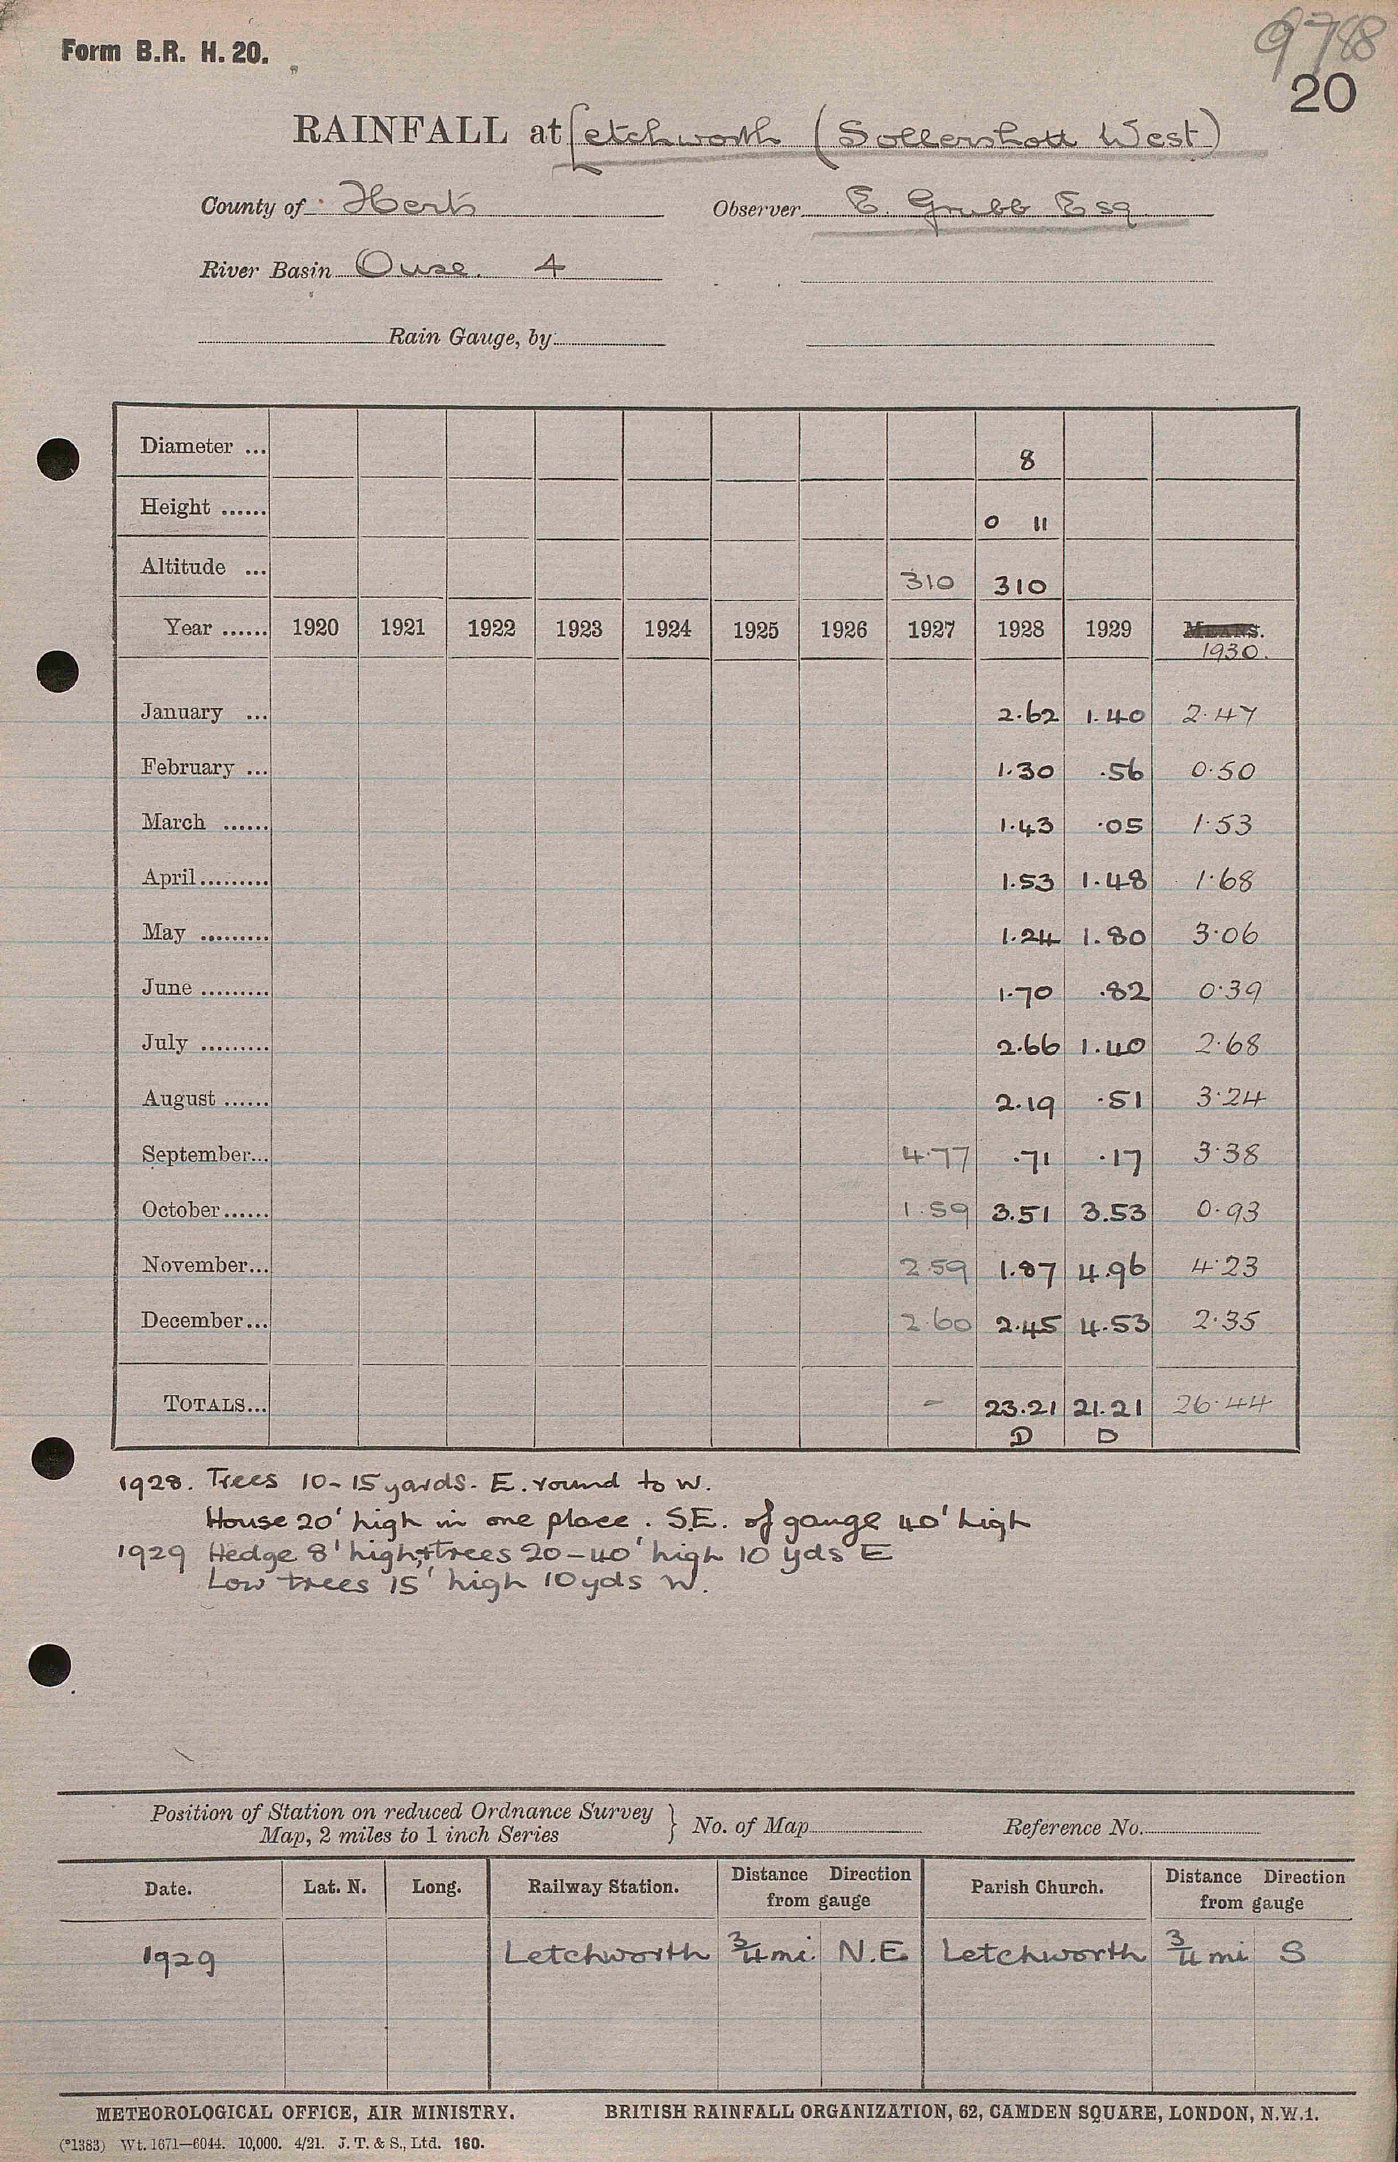 9788
Form B.R. H. 20.
20
RAINFALL at Letchworth (Sollershott West)
County of Herts Observer E. Grubb Esq
River Basin Ouse. 4
Rain Gauge, by
Diameter ... 8
Height ...... 0 11
Altitude ... 310 310
Year ...... 1920 1921 1922 1923 1924 1925 1926 1927 1928 1929 MEANS.
1930.
January ... 2.62 1.40 2.47
February ... 1.30 .56 0.50
March ...... 1.43 .05 1.53
April ......... 1.53 1.48 1.68
May ......... 1.24 1.80 3.06
June ......... 1.70 .82 0.39
July ......... 2.66 1.40 2.68
August ...... 2.19 .51 3.24
September... 4.77 .71 .17 3.38
October ...... 1.59 3.51 3.53 0.93
November... 2.59 1.87 4.96 4.23
December ... 2.60 2.45 4.53 2.35
TOTALS... - 23.21 21.21 26.44
D D
1928. Trees 10-15 yards. E. round to W.
House 20' high in one place. S.E. of gauge 40' high
1929 Hedge 8' high, + trees 20-40' high 10 yds E
Low trees 15' high 10 yds W.
Position of Station on reduced Ordnance Survey
Map, 2 miles to 1 inch Series } No. of Map Reference No.
Date. Lat. N. Long. Railway Station. Distance Direction from gauge Parish Church. Distance Direction from gauge
1929 Letchworth 3/4 mi N.E. Letchworth 3/4 mi S
METEOROLOGICAL OFFICE, AIR MINISTRY. BRITISH RAINFALL ORGANIZATION, 62, CAMDEN SQUARE, LONDON, N.W.1.
(*1383) Wt. 1671—6044. 10,000. 4/21. J. T. & S., Ltd. 160.